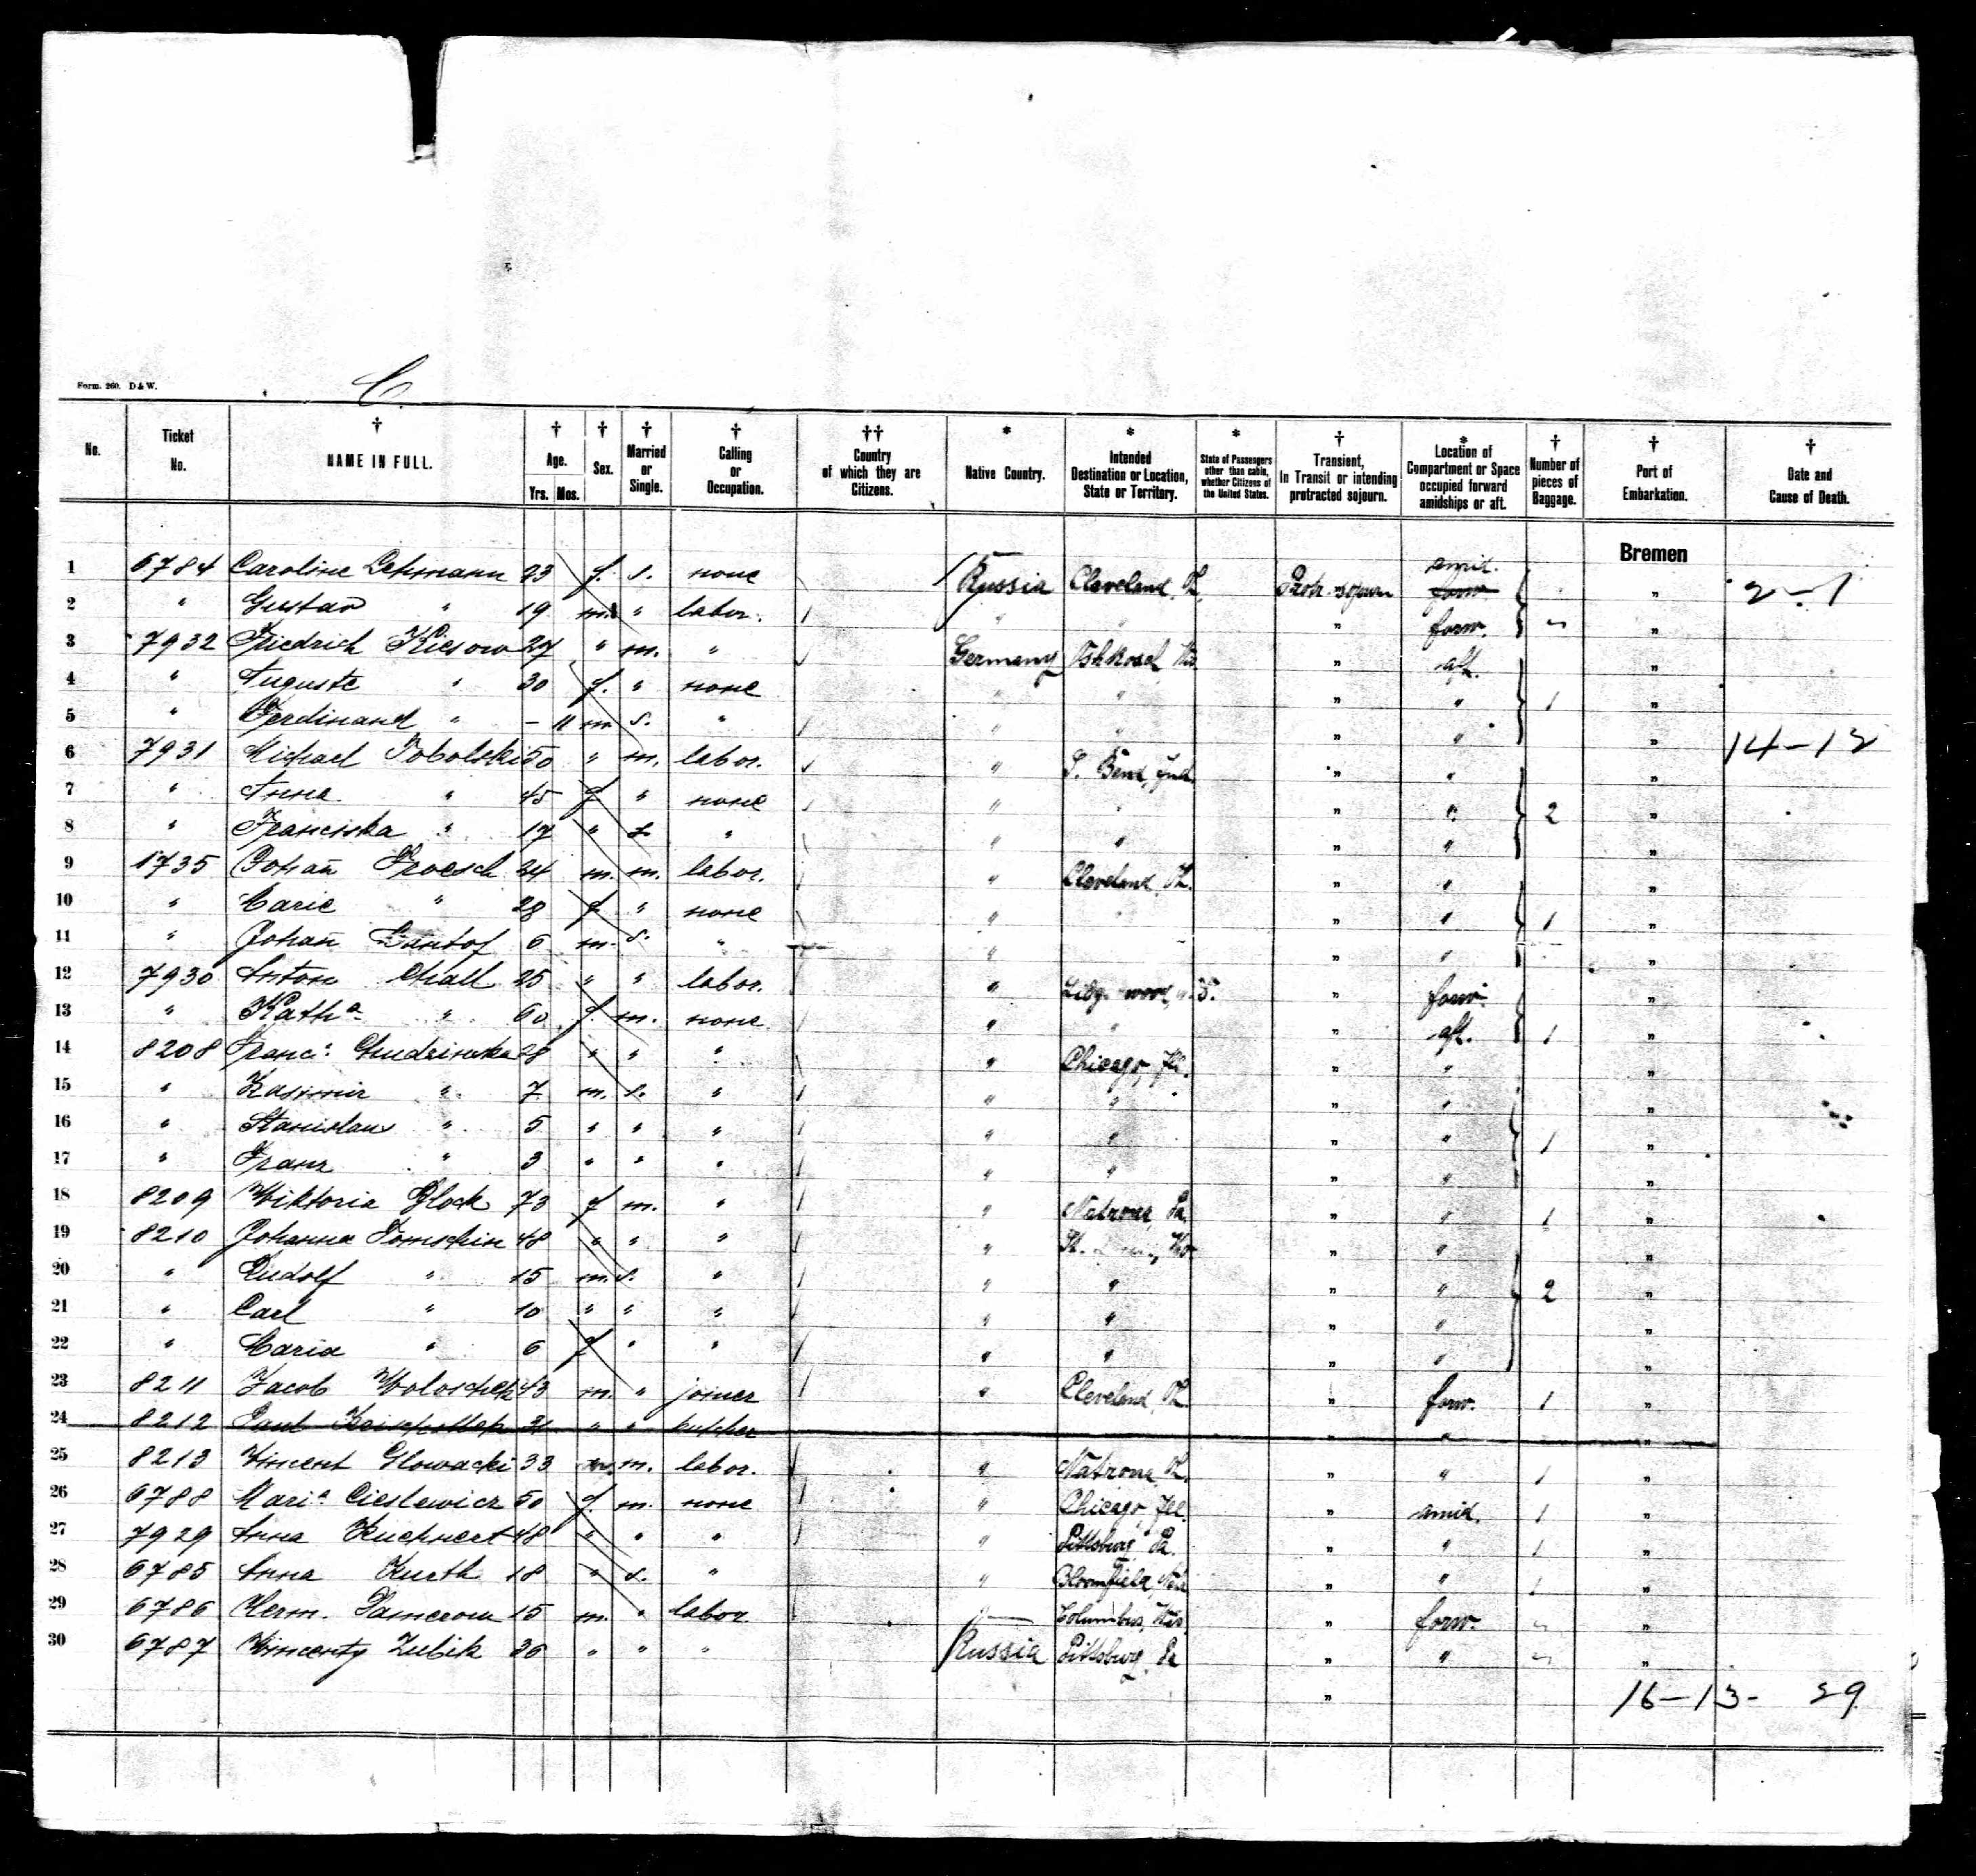 Form. 260. D & W.
C.
No. Ticket No. † NAME IN FULL. † Age. Yrs. Mos. † Sex. † Married or Single. † Calling or Occupation. †† Country of which they are Citizens. * Native Country. * Intended Destination or Location, State or Territory. * State of Passengers other than cabin, whether Citizens of the United States. † Transient, In Transit or intending protracted sojourn. * Location of Compartment or Space occupied forward amidships or aft. † Number of pieces of Baggage. † Port of Embarkation. † Date and Cause of Death.
Bremen
1 6784 Caroline Lehmann 23 f. s. none Russia Cleveland, O. Protr. sojourn amid. forw. " 2-1
2 " Gustav " 19 m. " labor. " " " forw. "
3 7932 Friedrich Kiesow 27 " m. " Germany Oshkosh Wis " aft. "
4 " Auguste " 30 f. " none " " " " 1 "
5 " Ferdinand " - 11 m s. " " " " " " 14-12
6 7931 Michael Sobolski 50 " m. labor. " S. Bend, Ind. " " "
7 " Anna " 45 f " none " " " " 2 "
8 " Franciska " 17 " s. " " " " " "
9 1735 Johan̄ Troesch 24 m. m. labor. " Cleveland, O. " " "
10 " Marie " 28 f " none " " " 1 "
11 " Johan̄ 6 m. s. " " " " "
12 7930 Anton 25 " " labor. " " forw. "
13 " Kath.a " 60 f. m. none " " " aft. 1 "
14 8208 Franc.a 28 " " " " Chicago, Ill. " " "
15 " Kasimir " 7 m. s. " " " " " "
16 " Stanislaus " 5 " " " " " " " 1 "
17 " Franz " 3 " " " " " " " "
18 8209 Wiktoria Glock 73 f m. " " Natrona, Pa. " " 1 "
19 8210 Johanna Tomschin 48 " " " " St. " " "
20 " Rudolf " 15 m. s. " " " " " 2 "
21 " Carl " 10 " " " " " " " "
22 " Maria " 6 f " " " " " " "
23 8211 Jacob 43 m. " joiner " Cleveland, O. " forw. 1 "
24 8212 Paul 31 " " butcher " " "
25 8213 Vincent Glowacki 33 m. m. labor. " Natrona, " " 1 "
26 6788 Mari.a Cieslewicz 50 f. m. none " Chicago, Ill. " amid. 1 "
27 7929 Anna Kuehnert 48 " " " " Pittsburg Pa. " " 1 "
28 6785 Anna Kurth 18 " s. " " Bloomfield, Neb " " 1 "
29 6786 Herm. Pamerow 15 m. " labor " Columbus, Wis " forw. "
30 6787 Wincenty Zubik 26 " " " Russia Pittsburg, Pa " " "
" 16-13- 29